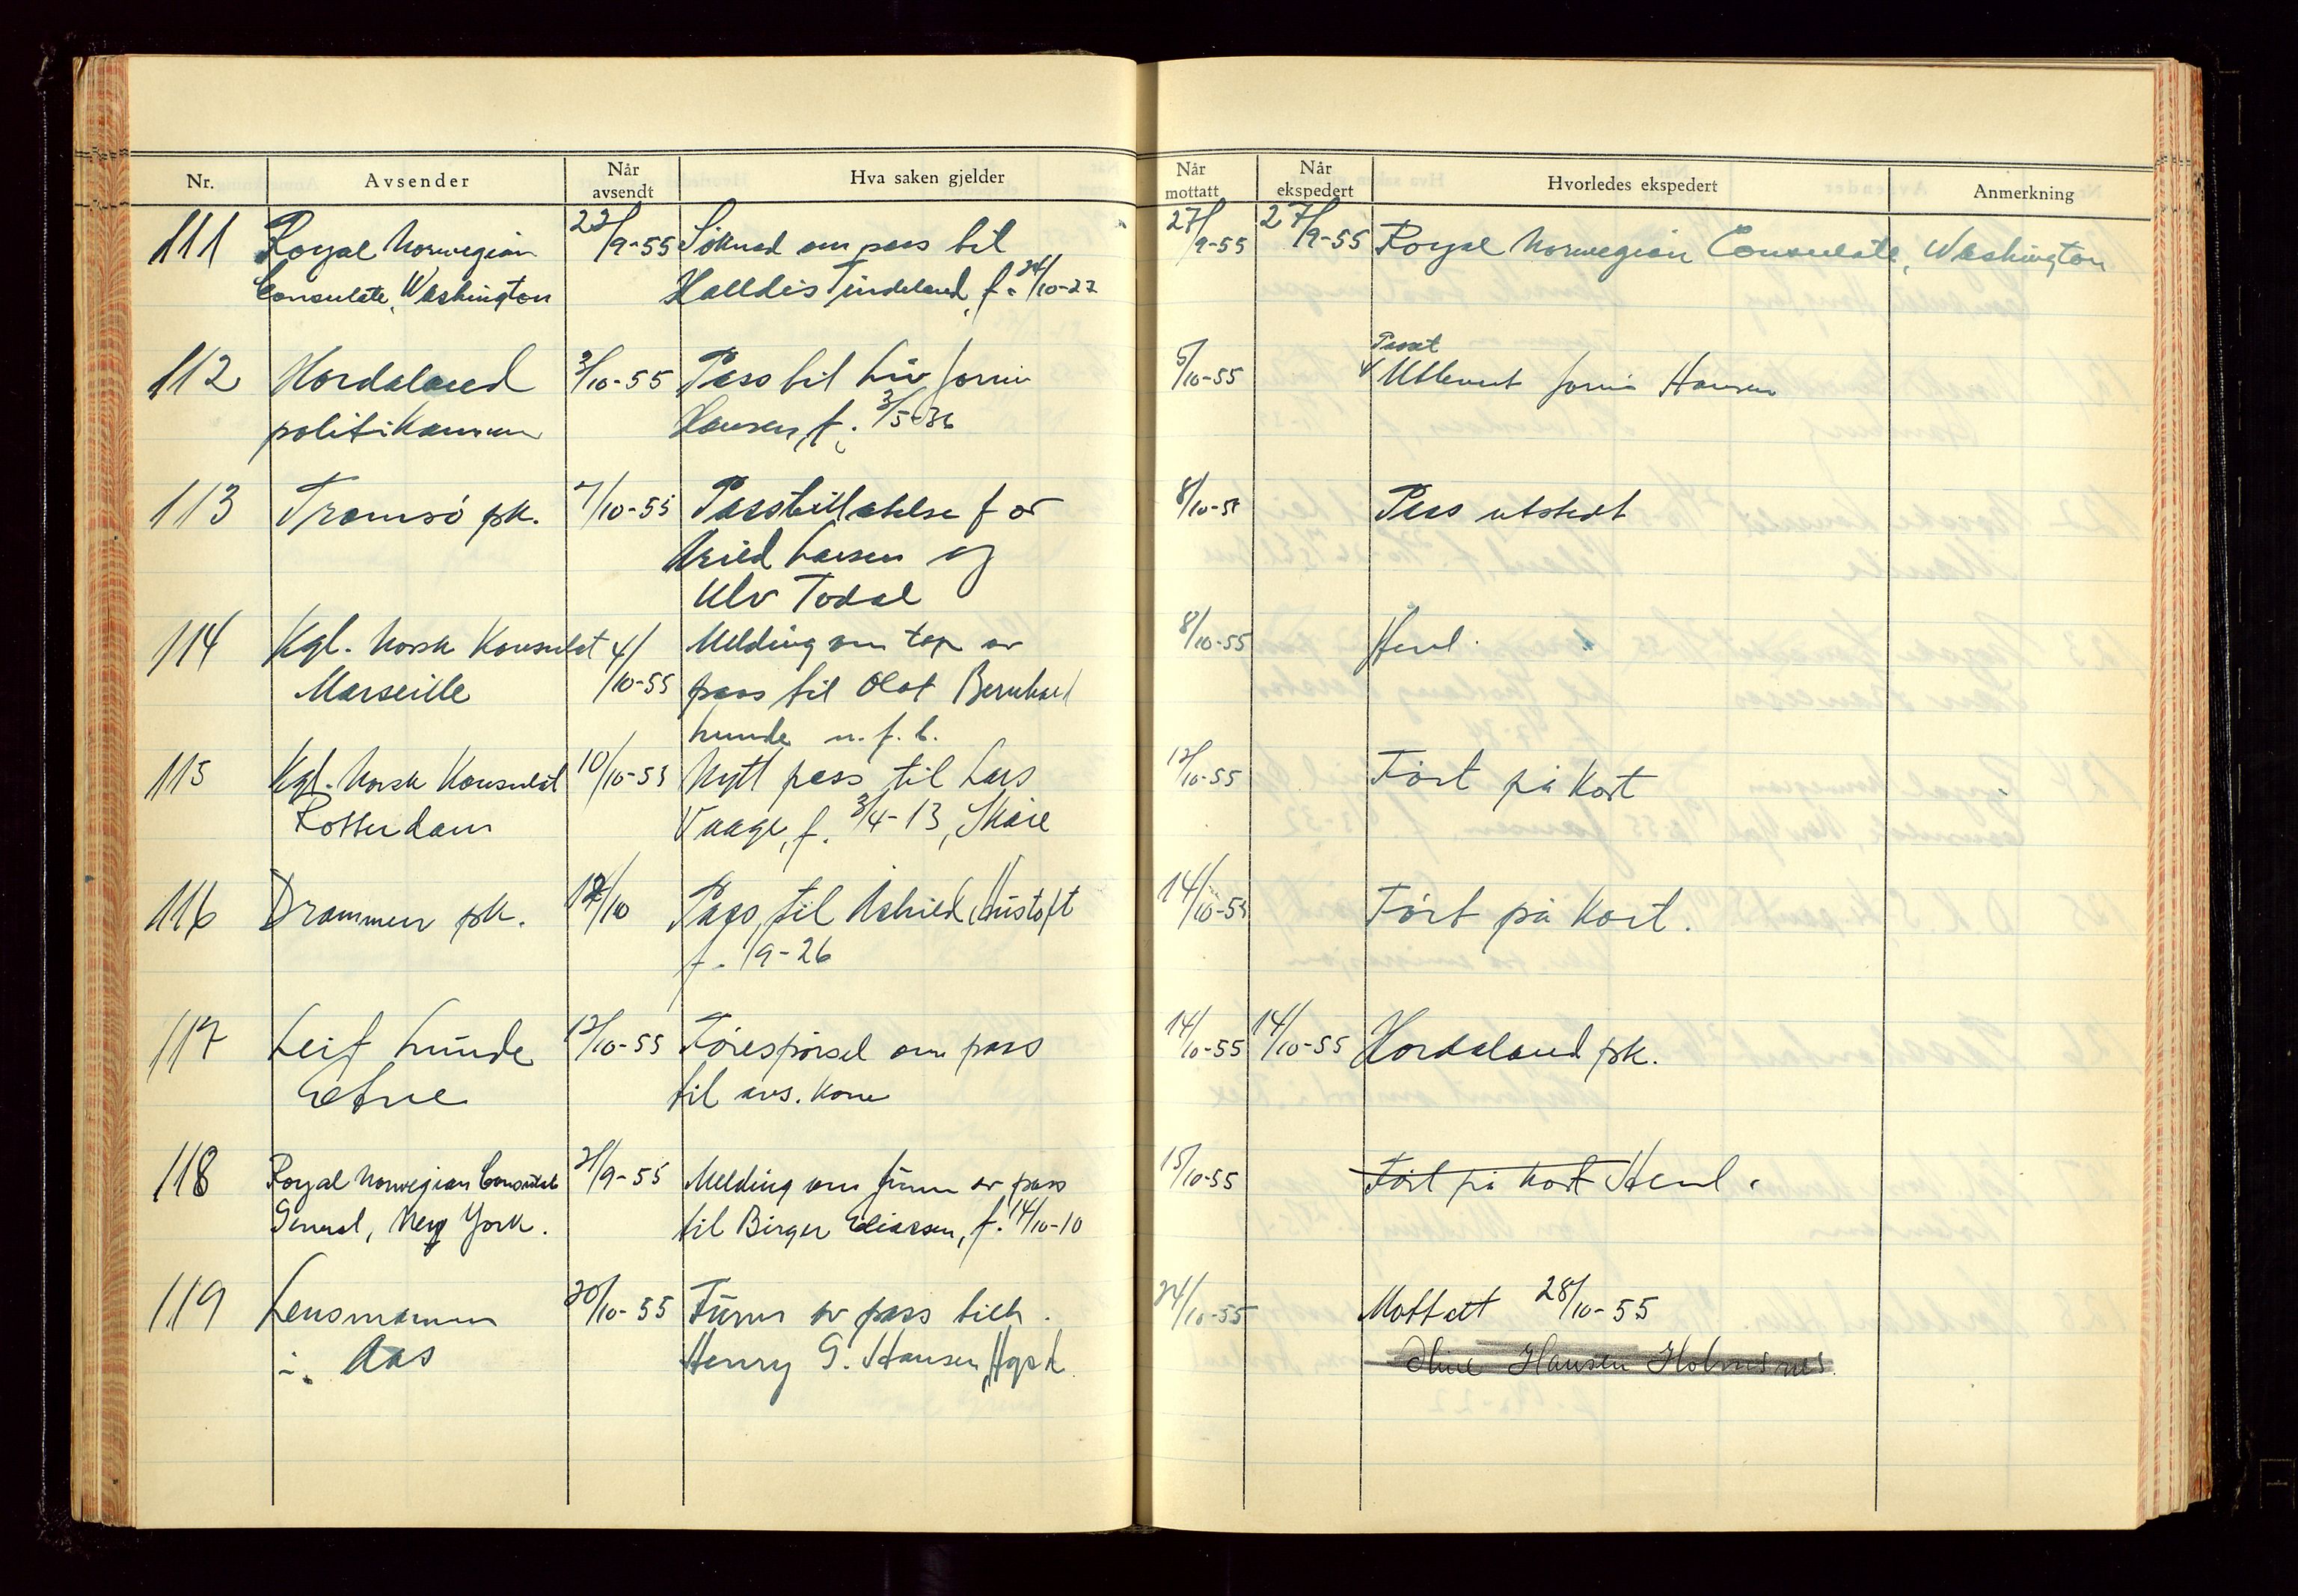 Nr. Avsender Når avsendt Hva saken gjelder Når mottatt Når ekspedert Hvorledes ekspedert Anmerkning
111 Royal Norwegian 22/9-55 Søknad om pass til 27/9-55 27/9-55 Royal Norwegian Consulate, Washington
Consulate, Washington Halldis Tindeland, f. 24/10-27
112 Hordaland 3/10-55 Pass til Liv Jorun 5/10-55 Passet Utlevert Hansen
politikammer Hansen, f. 3/5-36
113 Tromsø pk. 7/10-55 Passtillatelse for 8/10-55 Pass utstedt
Larsen og
Ulv Todal
114 Kgl. Norsk Konsulat 4/10-55 Melding om tap av 8/10-55 Henl.
Marseille pass til Olat Bernhard
Lunde n.f.b.
115 Kgl. Norsk Konsulat 10/10-55 Nytt pass til Lars 12/10-55 Ført på kort
Rotterdam Vaage, f. 3/4-13, Skåre
116 Drammen pk. 12/10 Pass til 14/10-55 Ført på kort.
f. /9-26
117 Leif Lunde 12/10-55 Førespørsel om pass 14/10-55 14/10-55 Hordaland pk.
Etne til avs. kone
118 Royal Norwegian Consulate 21/9-55 Melding om funn av pass 15/10-55 Ført på kort Henl.
General, New York. til Birger Eliassen, f. 14/10-10
119 Lensmannen 20/10-55 Funn av pass tilh. 24/10-55 Mottatt 28/10-55
i Aas Henry G. Hansen, Hgsd. Hansen Holmsnes.